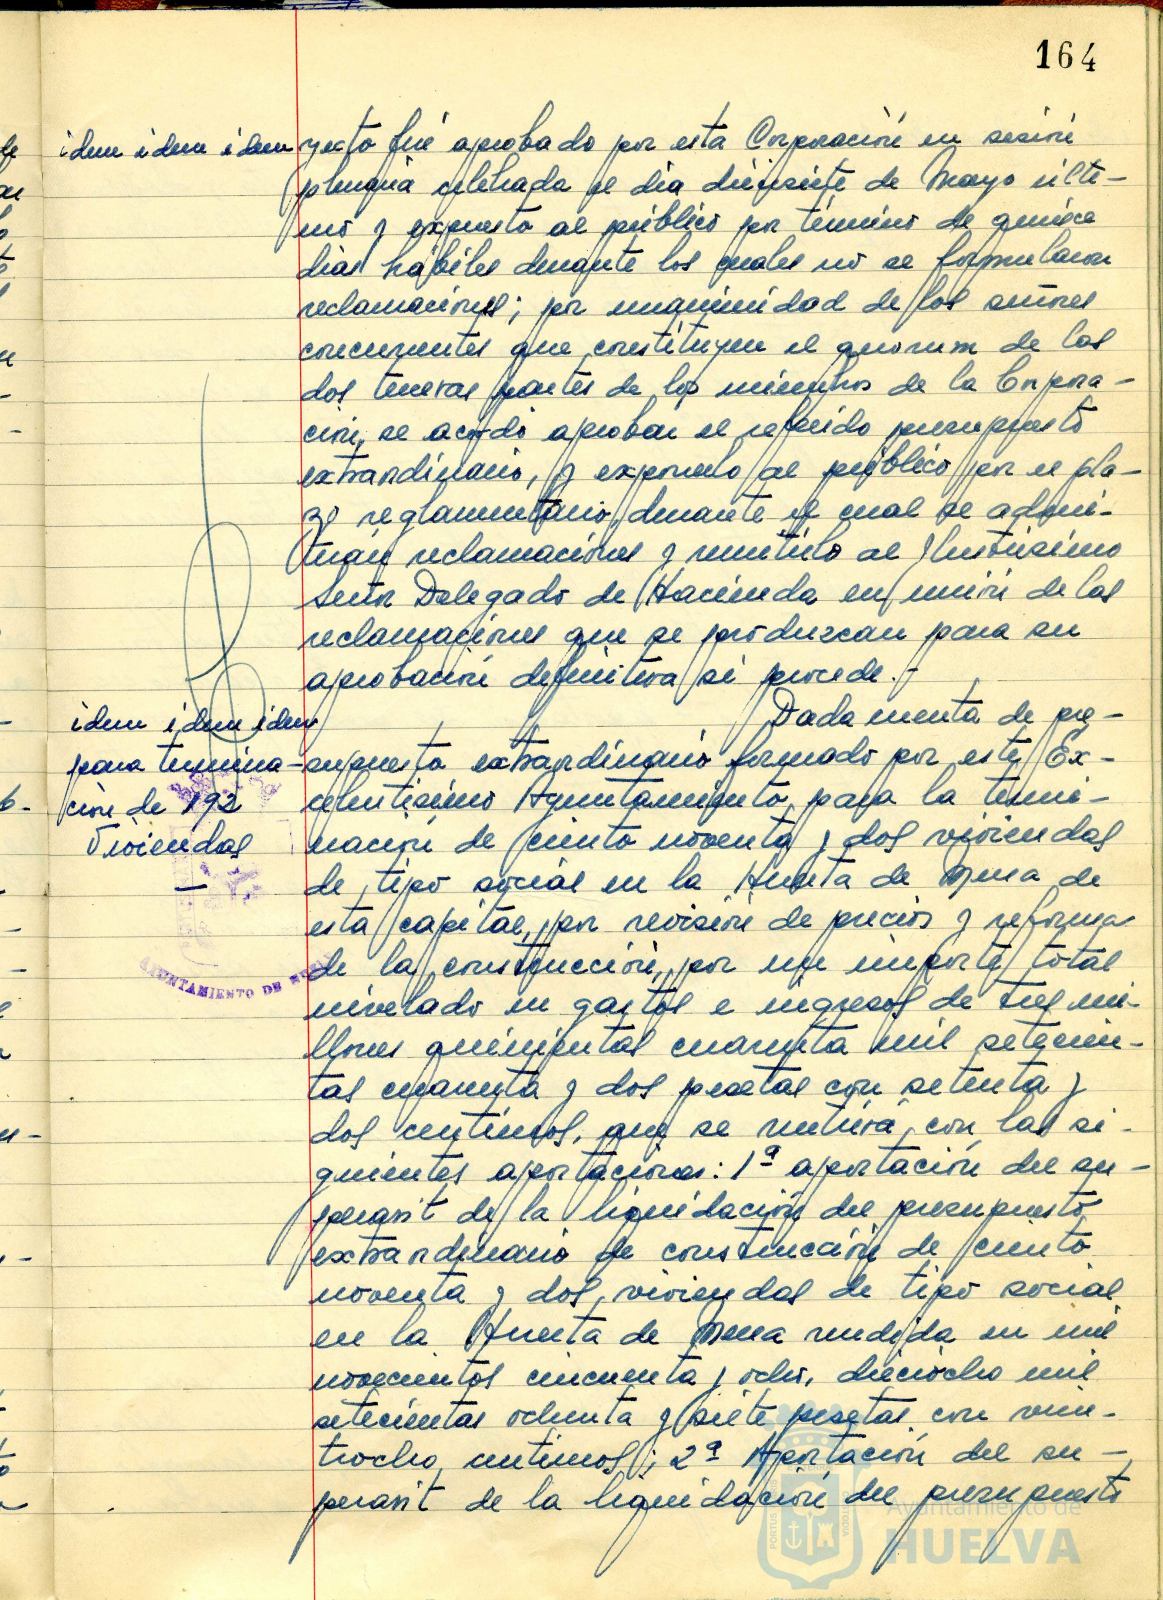 164
idem idem idem
yecto fué aprobado por esta Corporación en sesión
plenaria celebrada el dia diecisiete de Mayo últi-
mo y expuesto al público por término de quince
dias hábiles durante los cuales no se formularon
reclamaciones; por unanimidad de los señores
concurrentes que constituyen el quorum de las
dos terceras partes de los miembros de la Corpora-
ción, se acordó aprobar el referido presupuesto
extraordinario, y exponerlo al público por el pla-
zo reglamentario, durante el cual se admi-
tirán reclamaciones y remitirlo al Ilustrisimo
Señor Delegado de Hacienda en unión de las
reclamaciones que se produzcan para su
aprobación definitiva si procede.-
idem idem idem
para termina-
ción de 192
Viviendas
Dada cuenta de pre-
supuesto extraordinario formado por este Ex-
celentisimo Ayuntamiento, para la termi-
nación de ciento noventa y dos viviendas
de tipo social en la Huerta de Mena de
esta capital, por revisión de precios y reforma
de la construcción, por un importe total
nivelado en gastos e ingresos de tres mi-
llones quinientas cuarenta mil setecien-
tas cuarenta y dos pesetas con setenta y
dos centimos, que se nutirá, con las si-
guientes aportaciones: 1ª aportación del su-
peravit de la liquidación del presupuesto
extraordinario de construcción de ciento
noventa y dos, viviendas de tipo social
en la Huerta de Mena rendida en mil
novecientos cincuenta y ocho, dieciocho mil
setecientas ochenta y siete pesetas con vein-
tiocho centimos; 2ª Aportación del su-
peravit de la liquidación del presupuesto
AYUNTAMIENTO DE
Ayuntamiento de
HUELVA